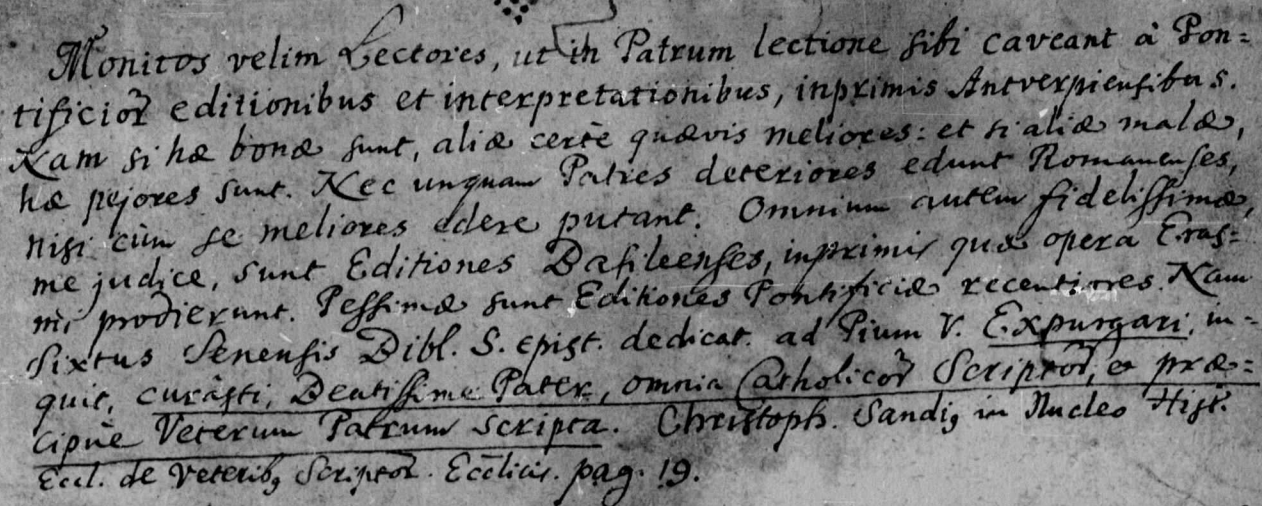 Monitos velim Lectores, ut in Patrum lectione sibi caveant à Pon=
tificior̃ editionibus et interpretationibus, inprimis Antverpiensibus.
Nam si hæ bonæ sunt, aliæ certè quævis meliores: et si aliæ malæ,
hæ pejores sunt. Nec unquam Patres deteriores edunt Romanenses,
nisi cùm se meliores edere putant. Omnium autem fidelissimæ,
me judice, sunt Editiones Basileenses, inprimis quæ opera Eras=
mi prodierunt. Pessimæ sunt Editiones Pontificiæ recentiores. Nam
Sixtus Senensis Bibl. S. epist. dedicat. ad Pium V. Expurgari, in=
quit, curàsti, Beatissime Pater, omnia Catholicor̃ Scriptor̃, et præ=
cipuè Veterum Patrum scripta. Christoph. Sandiꝰ in Nucleo Hist.
Eccl. de Veteribꝰ Scriptor̃. Ecc̃licis. pag. 19.